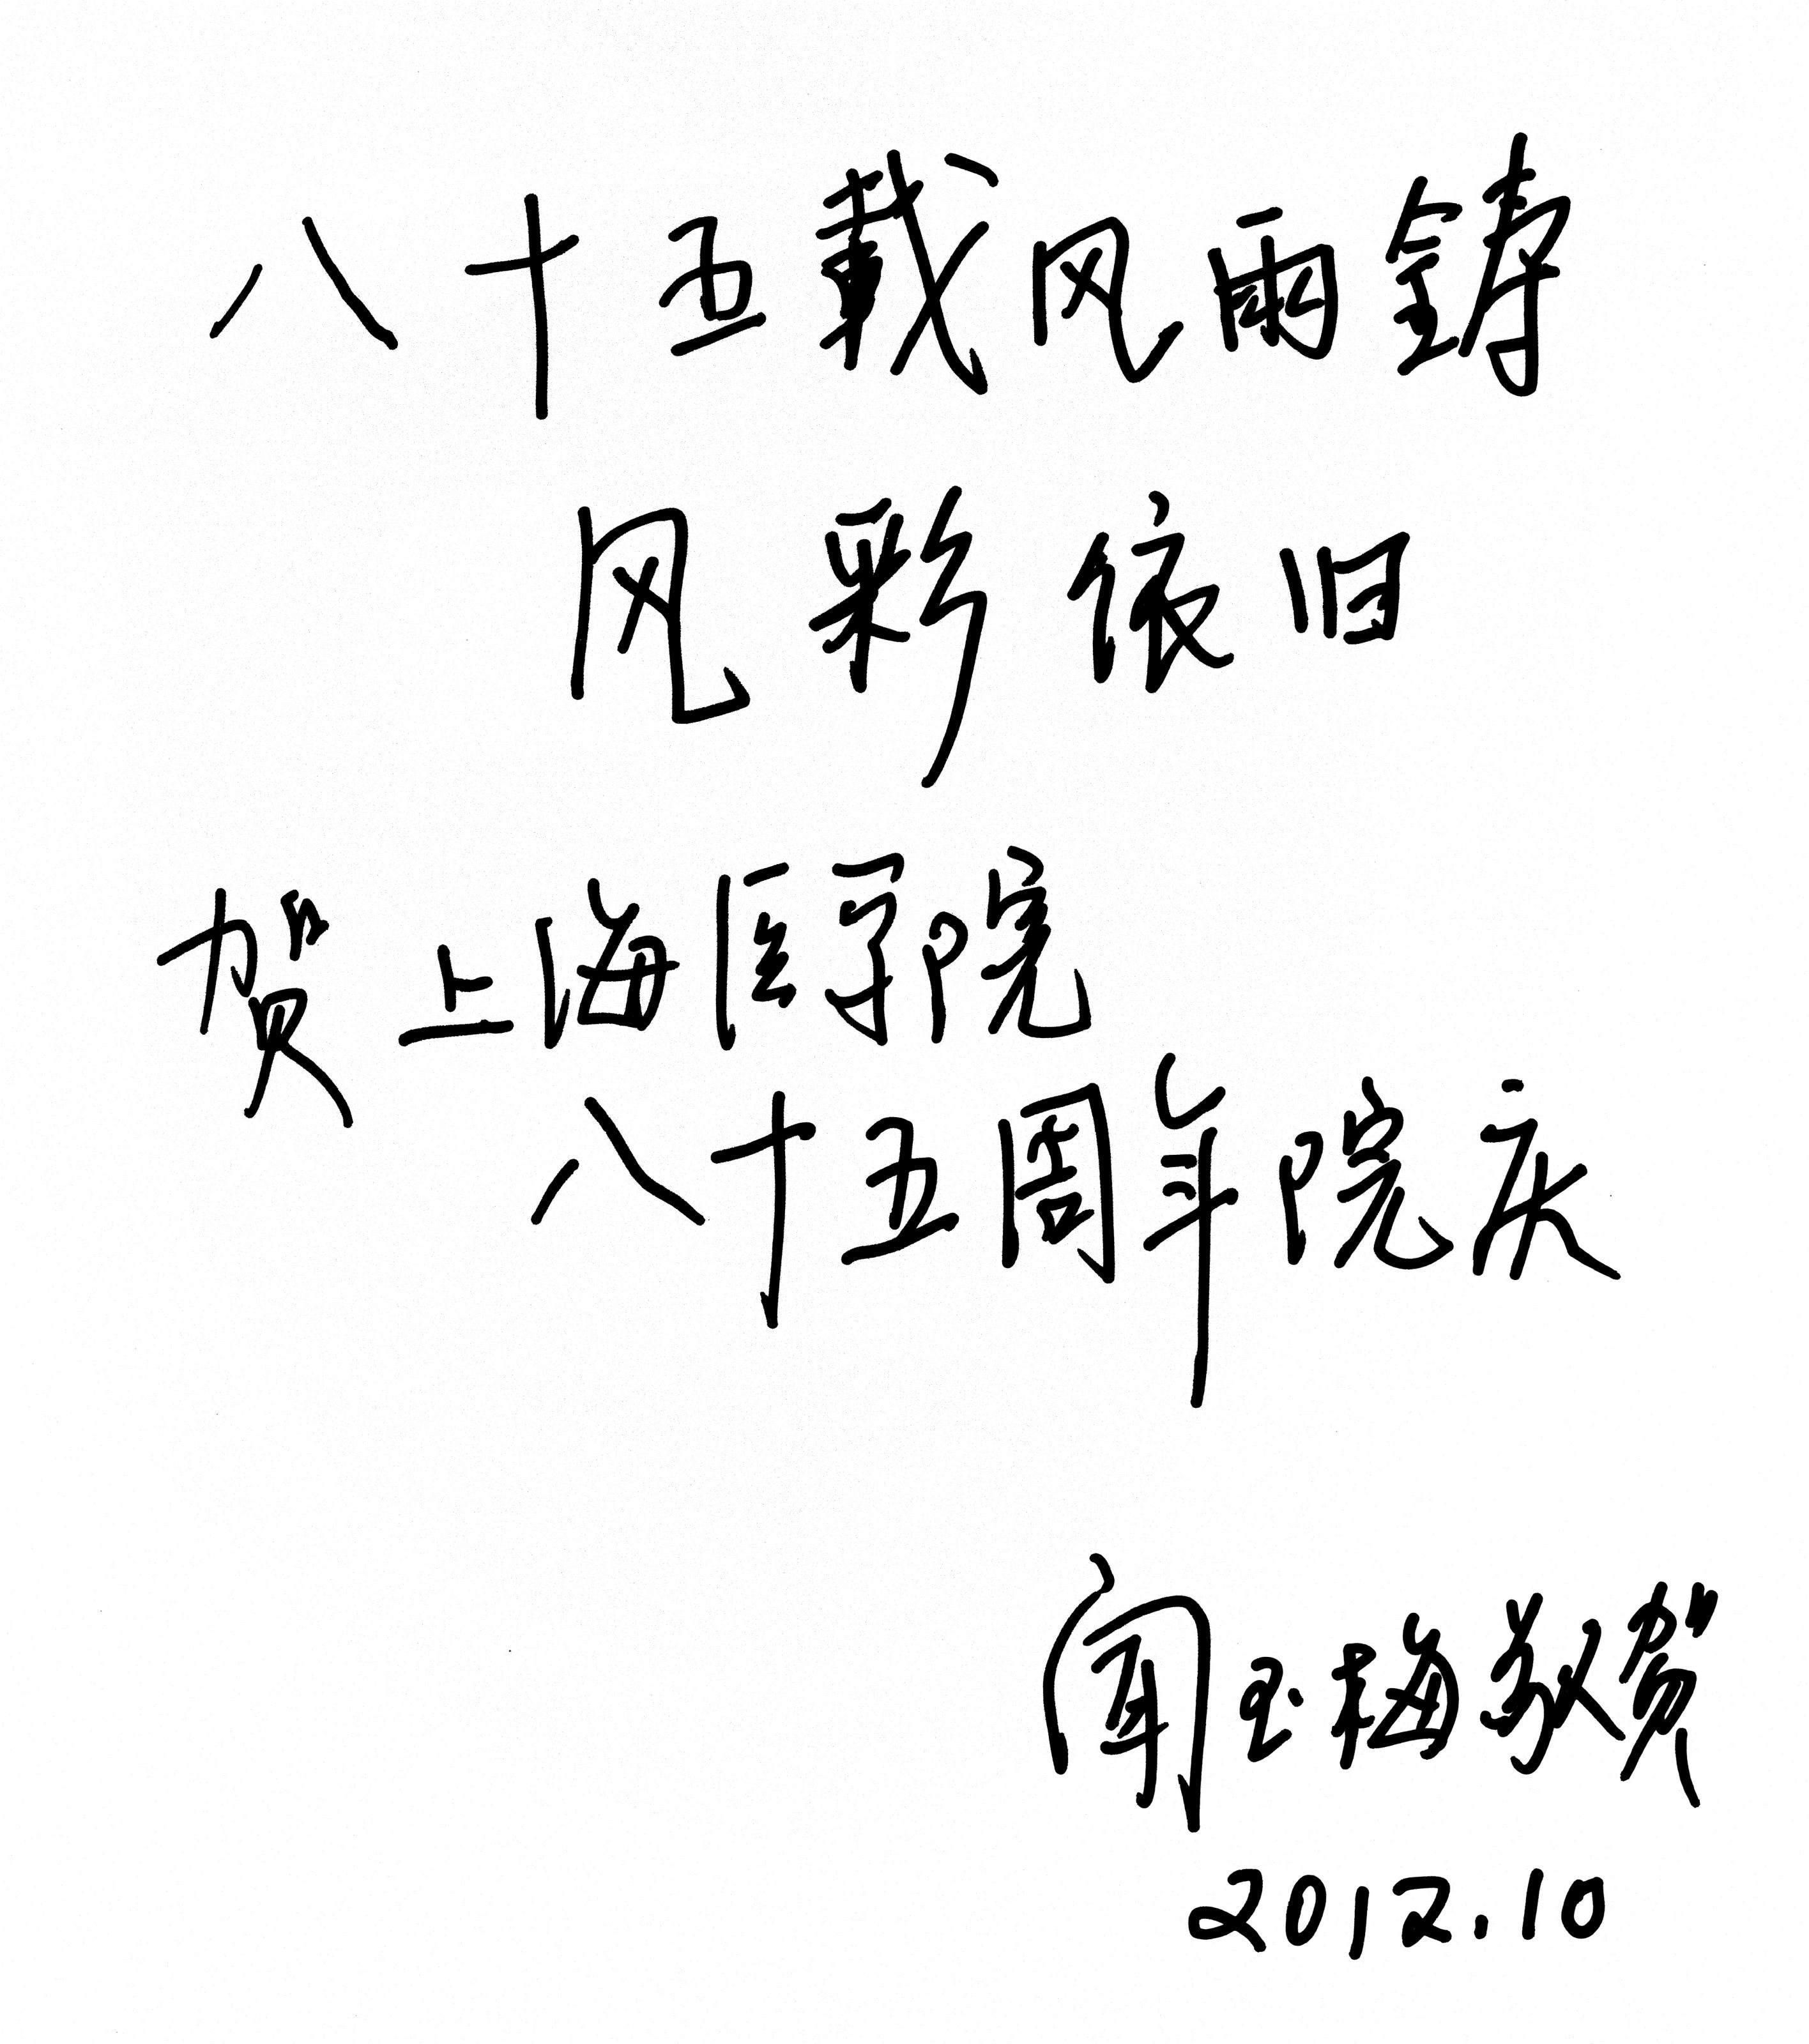 八十五载风雨铸
风彩依旧
贺上海医学院
八十五周年院庆
闻玉梅敬贺
2012.10